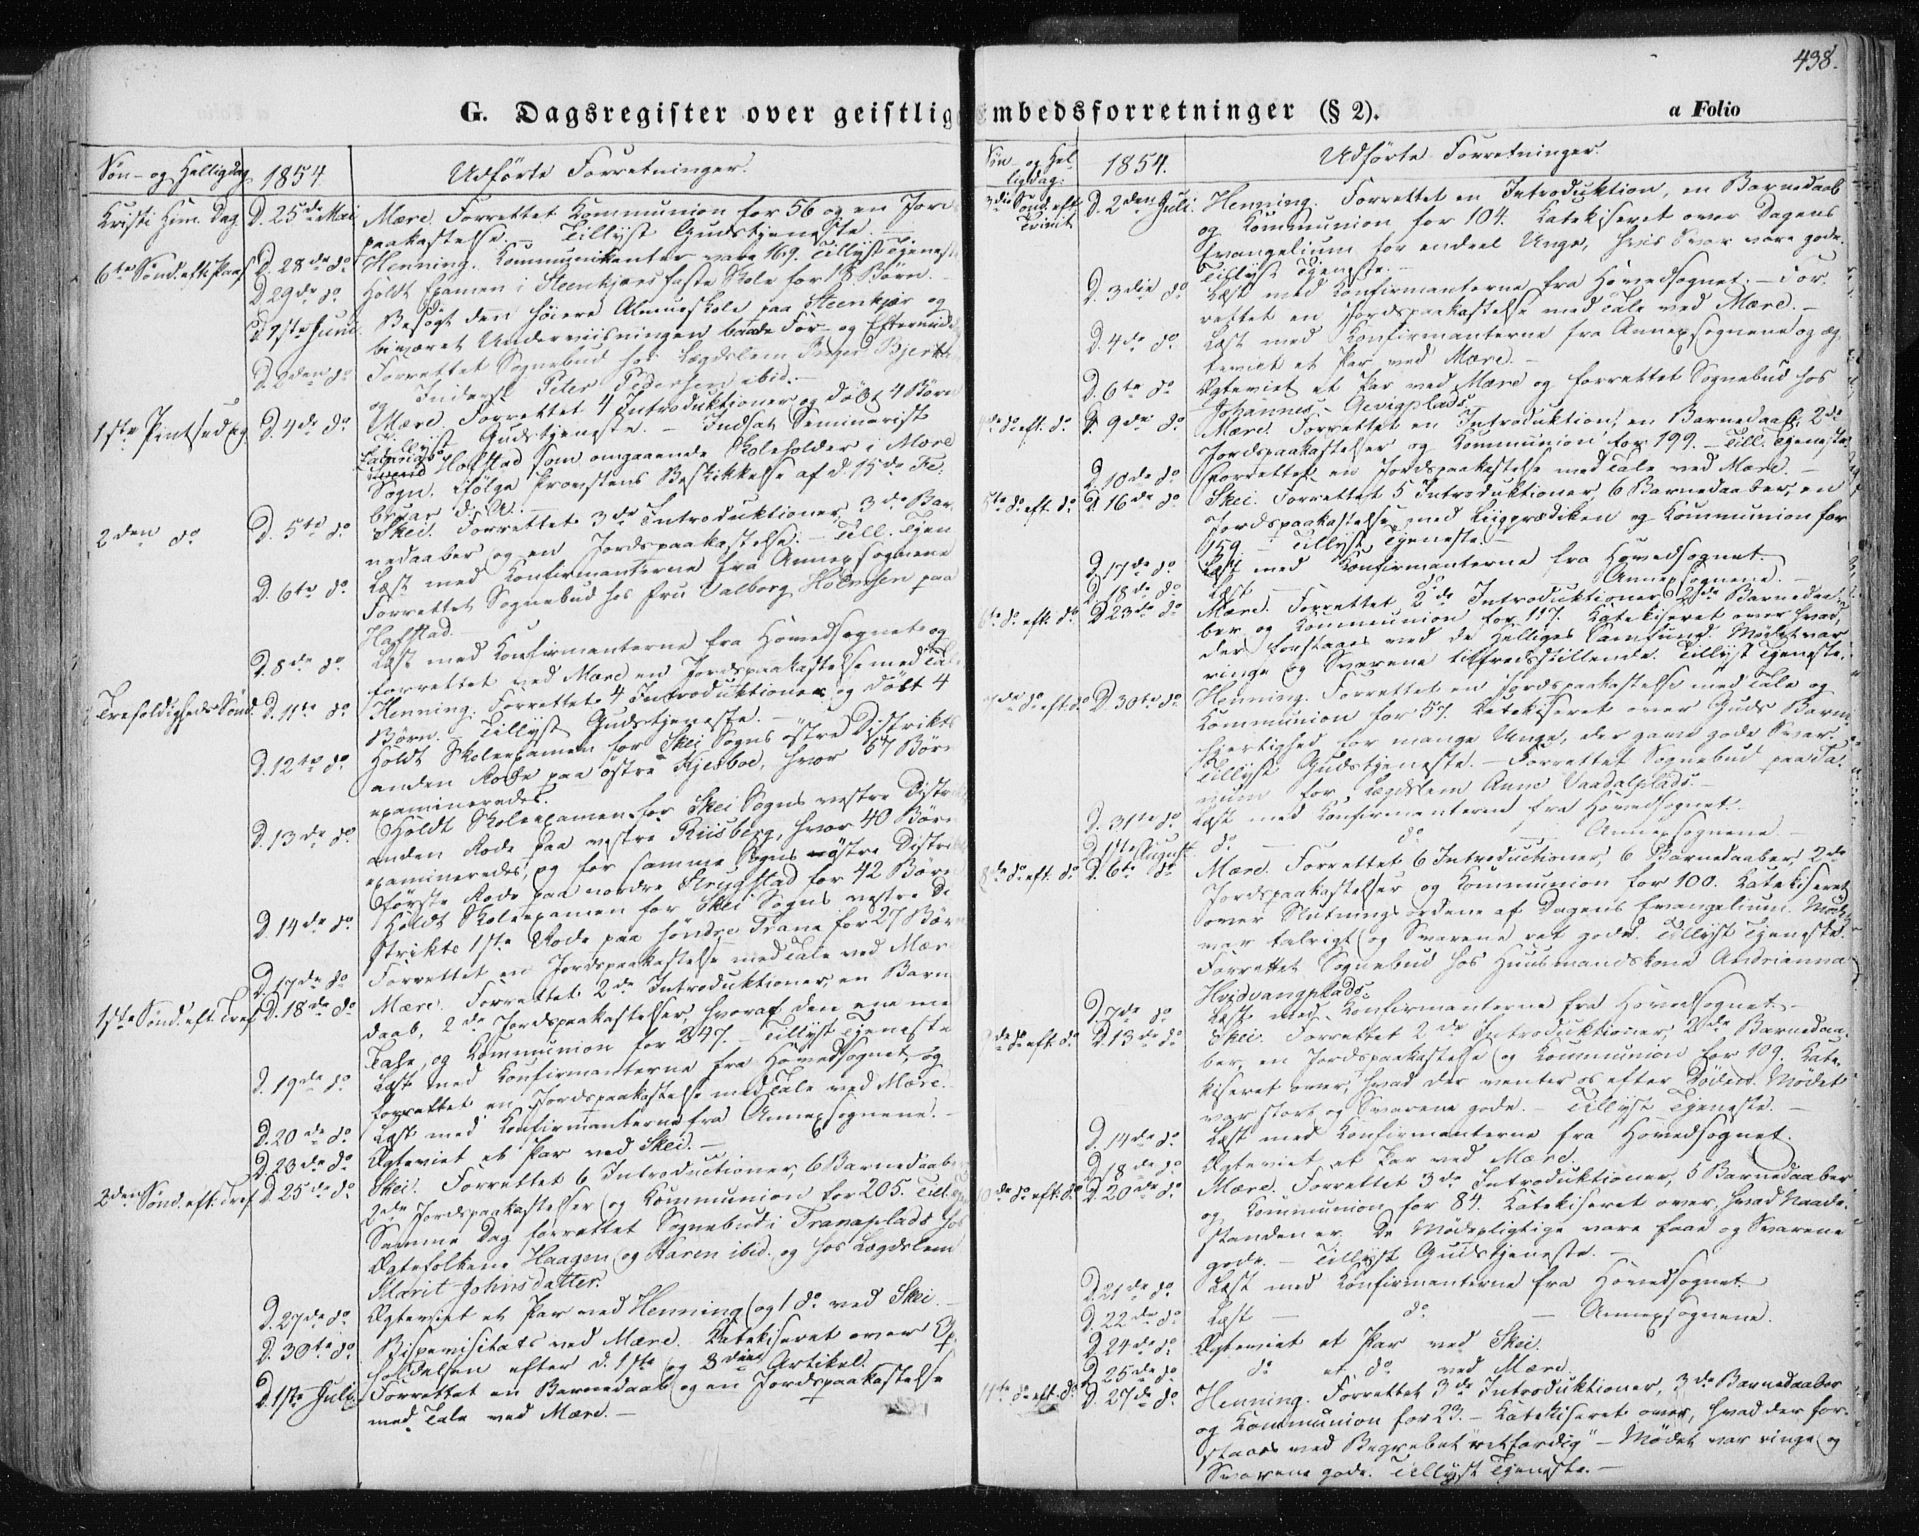 438.
G. Dagsregister over geistlig mbedsforretninger (§ 2).
a Folio
Søn- og Helligdag 1854. Udførte Forretninger.
Kristi Him. Dag. D. 25de Mai Mære. Forrettet Kommunion for 56 og en Jords
paakastelse. – Tillyst Gudstjeneste. –
6te Sønd. eft. Paas. D. 28de do Henning. Kommunikanter vare 169. Tillyst Tjeneste
D. 29de do Holdt Examen i Steenkjærs faste Skole for 18 Børn. –
D. 1ste Juni Besøgt den høiere Almueskole paa Steenkjær og
bivaaret Underviisningen baade For- og Eftermiddag
D. 2den do Forrettet Sognebud hos Lægdslem Bjerk
og Inderst Peter Pedersen ibid. –
1ste Pintsedag D. 4de do Mære. Forrettet 4 Introduktioner og døbt 4 Børn
Tillyst Gudstjeneste. – Indsat Seminarist
Hofstad som omgaaende Skoleholder i Mære
Sogn, ifølge Provstens Beskikkelse af d. 15de Fe-
bruar d. A. –
2den do D. 5te do Skei. Forrettet 3de Introduktioner, 3de Bar-
nedaaber og en Jordspaakastelse. – Till. Tjen
D. 6te do Læst med Konfirmanterne fra Annexsognene
Forrettet Sognebud hos Fru Valborg Holmsen paa
Hafstad. –
D. 8de do Læst med Konfirmanterne fra Hovedsognet og
forrettet ved Mære en Jordspaakastelse med Tale
Trefoldigheds Sønd. D. 11te do Henning. Forrettet 4 Introduktioner og døbt 4
Børn. – Tillyst Gudstjeneste. –
D. 12te do Holdt Skoleexamen for Skei Sogns østre Distrikts
anden Rode paa østre Kjesboe, hvor 57 Børn
examineredes.
D. 13de do Holdt Skoleexamen for Skei Sogns vestre Distrikts
anden Rode paa vestre Riisberg, hvor 40 Børn
examineredes, og for samme Sogns østre Distrikts
første Rode paa nordre Strugstad for 42 Børn
D. 14de do Holdt Skoleexamen for Skei Sogns vestre Di-
strikts 1ste Rode paa søndre Trana for 27 Børn
D. 17de do Forrettet en Jordspaakastelse med Tale ved Mære
1ste Sønd. eft. Tref. D. 18de do Mære. Forrettet 2de Introduktioner, en Barne
daab, 2de Jordspaakastelser, hvoraf den ene me
Tale, og Kommunion for 247. – Tillyst Tjeneste
D. 19de do Læst med Konfirmanterne fra Hovedsognet, og
forrettet en Jordspaakastelse med Tale ved Mære.
D. 20de do Læst med Konfirmanterne fra Annexsognene. –
D. 23de do Ægteviet et Par ved Skei. –
2den Sønd. eft. Tref. D. 25de do Skei. Forrettet 6 Introductioner, 6 Barnedaaber
2de Jordspaakastelser og Kommunion for 205. Till.
Samme Dag forrettet Sognebud i Tranaplads hos
Ægtefolkene Haagen og Karen ibid. og hos Lægdslem
Marit Johnsdatter.
D. 27de do Ægteviet et Par ved Henning og 1 do ved Skei. –
D. 30te do Bispevisitats ved Mære. Katekiseret over
efter d. 1ste og 3die Artikel.
D. 1ste Juli Forrettet en Barnedaab og en Jordspaakastelse
med Tale ved Mære. –
Søn- og Hel-
ligdag. 1854. Udførte Forretninger.
3die Sønd. eft.
Trinit. D. 2den Juli. Henning. Forrettet en Introduktion, en Barnedaab
og Kommunion for 104. Katekiseret over Dagens
Evangelium for endeel Unge, hvis Svar vare gode.
Tillyst Tjeneste. –
D. 3die do Læst med Konfirmanterne fra Hovedsognet. – For-
rettet en Jordspaakastelse med Tale ved Mære. –
D. 4de do Læst med Konfirmanterne fra Annexsognene og æg-
teviet et Par ved Mære. –
D. 6te do Ægteviet et Par ved Mære og forrettet Sognebud hos
Johannes Gevigplads.
4de do eft. do D. 9de do Mære. Forrettet en Introduktion, en Barnedaab, 2de
Jordspaakastelser og Kommunion for 199. – Till. Tjeneste
D. 10de do Forrettet en Jordspaakastelse med Tale ved Mære. –
5te do eft. do D. 16de do Skei. Forrettet 5 Introduktioner, 6 Barnedaaber, en
Jordspaakastelse med Liigprædiken og Kommunion for
159. – Tillyst Tjeneste. –
D. 17de do Læst med Konfirmanterne fra Hovedsognet.
D. 18de do Læst – do – Annexsognene. –
6te do eft. do D. 23de do Mære. Forrettet 2de Introduktioner, 2de Barnedaa-
ber og Kommunion for 117. Katekiseret over hvad
der forstaaes ved de Helliges Samfund. Mødet var
ringe og Svarene tilfredsstillende. Tillyst Tjeneste.
7de do eft. do D. 30te do Henning. Forrettet en Jordspaakastelse med Tale og
Kommunion for 57. Katekiseret over Guds Barm-
hjertighed for mange Unge, der gave gode Svar.
Tillyst Gudstjeneste. – Forrettet Sognebud paa Ta-
num for Lægdslem Anne Vaadalplads. –
D. 31te do Læst med Konfirmanterne fra Hovedsognet.
D. 1ste August do – do – Annexsognene. –
8de do eft. do D. 6te do Mære. Forrettet 6 Introductioner, 6 Barnedaaber, 2de
Jordspaakastelser og Kommunion for 100. Katekiseret
over Slutningsordene af Dagens Evangelium. Mødet
var talrigt og Svarene ret gode. Tillyst Tjeneste.
Forrettet Sognebud hos Huusmandskone Andrianna
Hvidvangplads.
D. 7de do Læst med Konfirmanterne fra Hovedsognet. –
9de do eft. do D. 13de do Skei. Forrettet 2de Introduktioner, 2de Barnedaa-
ber, en Jordspaakastelse og Kommunion for 109. Kate-
kiseret over, hvad der venter os efter Døden. Mødet
var stort og Svarene gode. – Tillyst Tjeneste. –
D. 14de do Læst med Konfirmanterne fra Hovedsognet.
D. 18de do Ægteviet et Par ved Mære.
10de do eft. do D. 20de do Mære. Forrettet 3de Introduktioner, 5 Barnedaaber
og Kommunion for 84. Katekiseret over, hvad Naade-
standen er. De Mødepligtige vare faae og Svarene
gode. – Tillyst Gudstjeneste. –
D. 21de do Læst med Konfirmanterne fra Hovedsognet
D. 22de do Læst – do – Annexsognene.
D. 24de do Ægteviet et Par ved Skei.
D. 25de do do et do ved Mære.
11te do eft. do D. 27de do Henning. Forrettet 3de Introduktioner, 3de Barnedaaber
og Kommunion for 23. – Katekiseret over, hvad der for-
staaes ved Begrebet "retfærdig" – Mødet var ringe og
Svarene gode. Tillyst Tjeneste. –